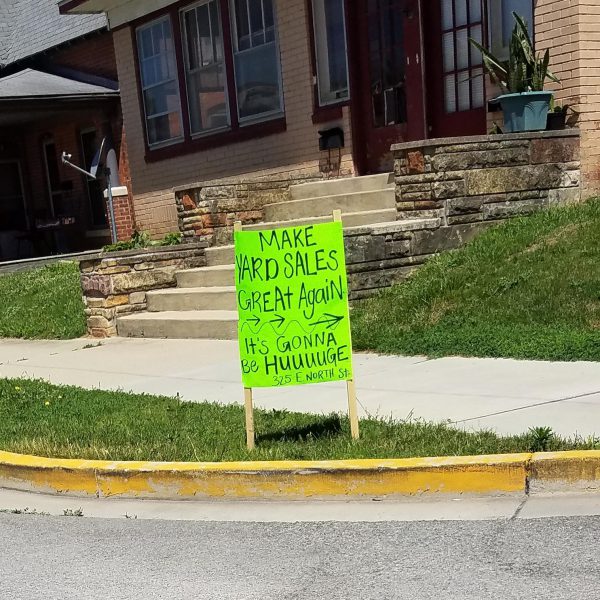 MAKE
YARD SALES
GREAt AgaiN
It's GONNA
Be HUUUUGE
325 E. NORTH St.